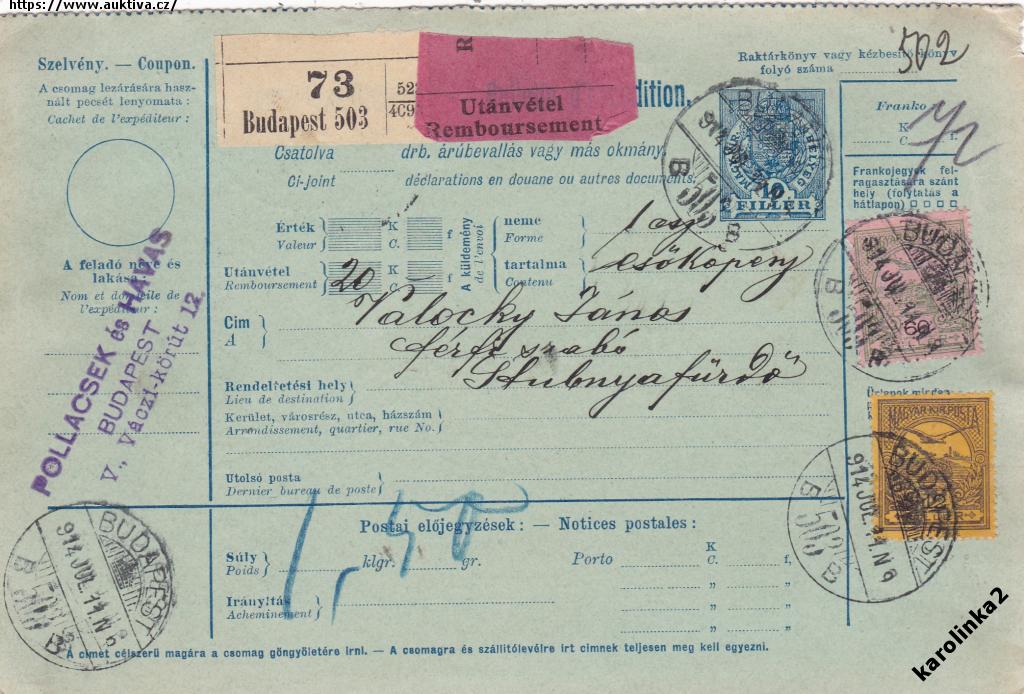 https://www.auktiva.cz/
Szelvény. — Coupon.
A csomag lezárására hasz-
nált pecsét lenyomata:
Cachet de l'expéditeur:
A feladó neve és
lakása:
Nom et domicile de
l'expéditeur:
POLLACSEK és HAVAS
BUDAPEST
V., Váczi-körút 12.
73
Budapest 503
R
Utánvétel
Remboursement
dition.
Raktárkönyv vagy kézbesítő könyv
folyó száma
502
Franko
K
C.
f.
Csatolva drb. árúbevallás vagy más okmány.
Ci-joint déclarations en douane ou autres documents.
MAGYAR
10
FILLÉR
Frankojegyek fel-
ragasztására szánt
hely (folytatás a
hátlapon)
Érték K f
Valeur C.
Utánvétel K f
Remboursement C.
20
A küldemény
de l'envoi
neme
Forme
tartalma
Contenu
1 cso
esőköpeny
Cim
A
Valocky János
férfi szabó
Stubnyafürdő
Rendeltetési hely
Lieu de destination
Kerület, városrész, utca, házszám
Arrondissement, quartier, rue No.
Utolsó posta
Dernier bureau de poste
Postai előjegyzések: — Notices postales:
Súly klgr. gr.
Poids
1,50
Porto K f.
C.
" "
" "
Irányítás
Acheminement
MAGYAR KIR. POSTA
60
BUDAPEST
914 JUL. 11. N 6
B 503 B
A címet célszerű magára a csomag göngyöletére irni. — A csomagra és szállítólevélre irt cimnek teljesen meg kell egyezni.
karolinka2